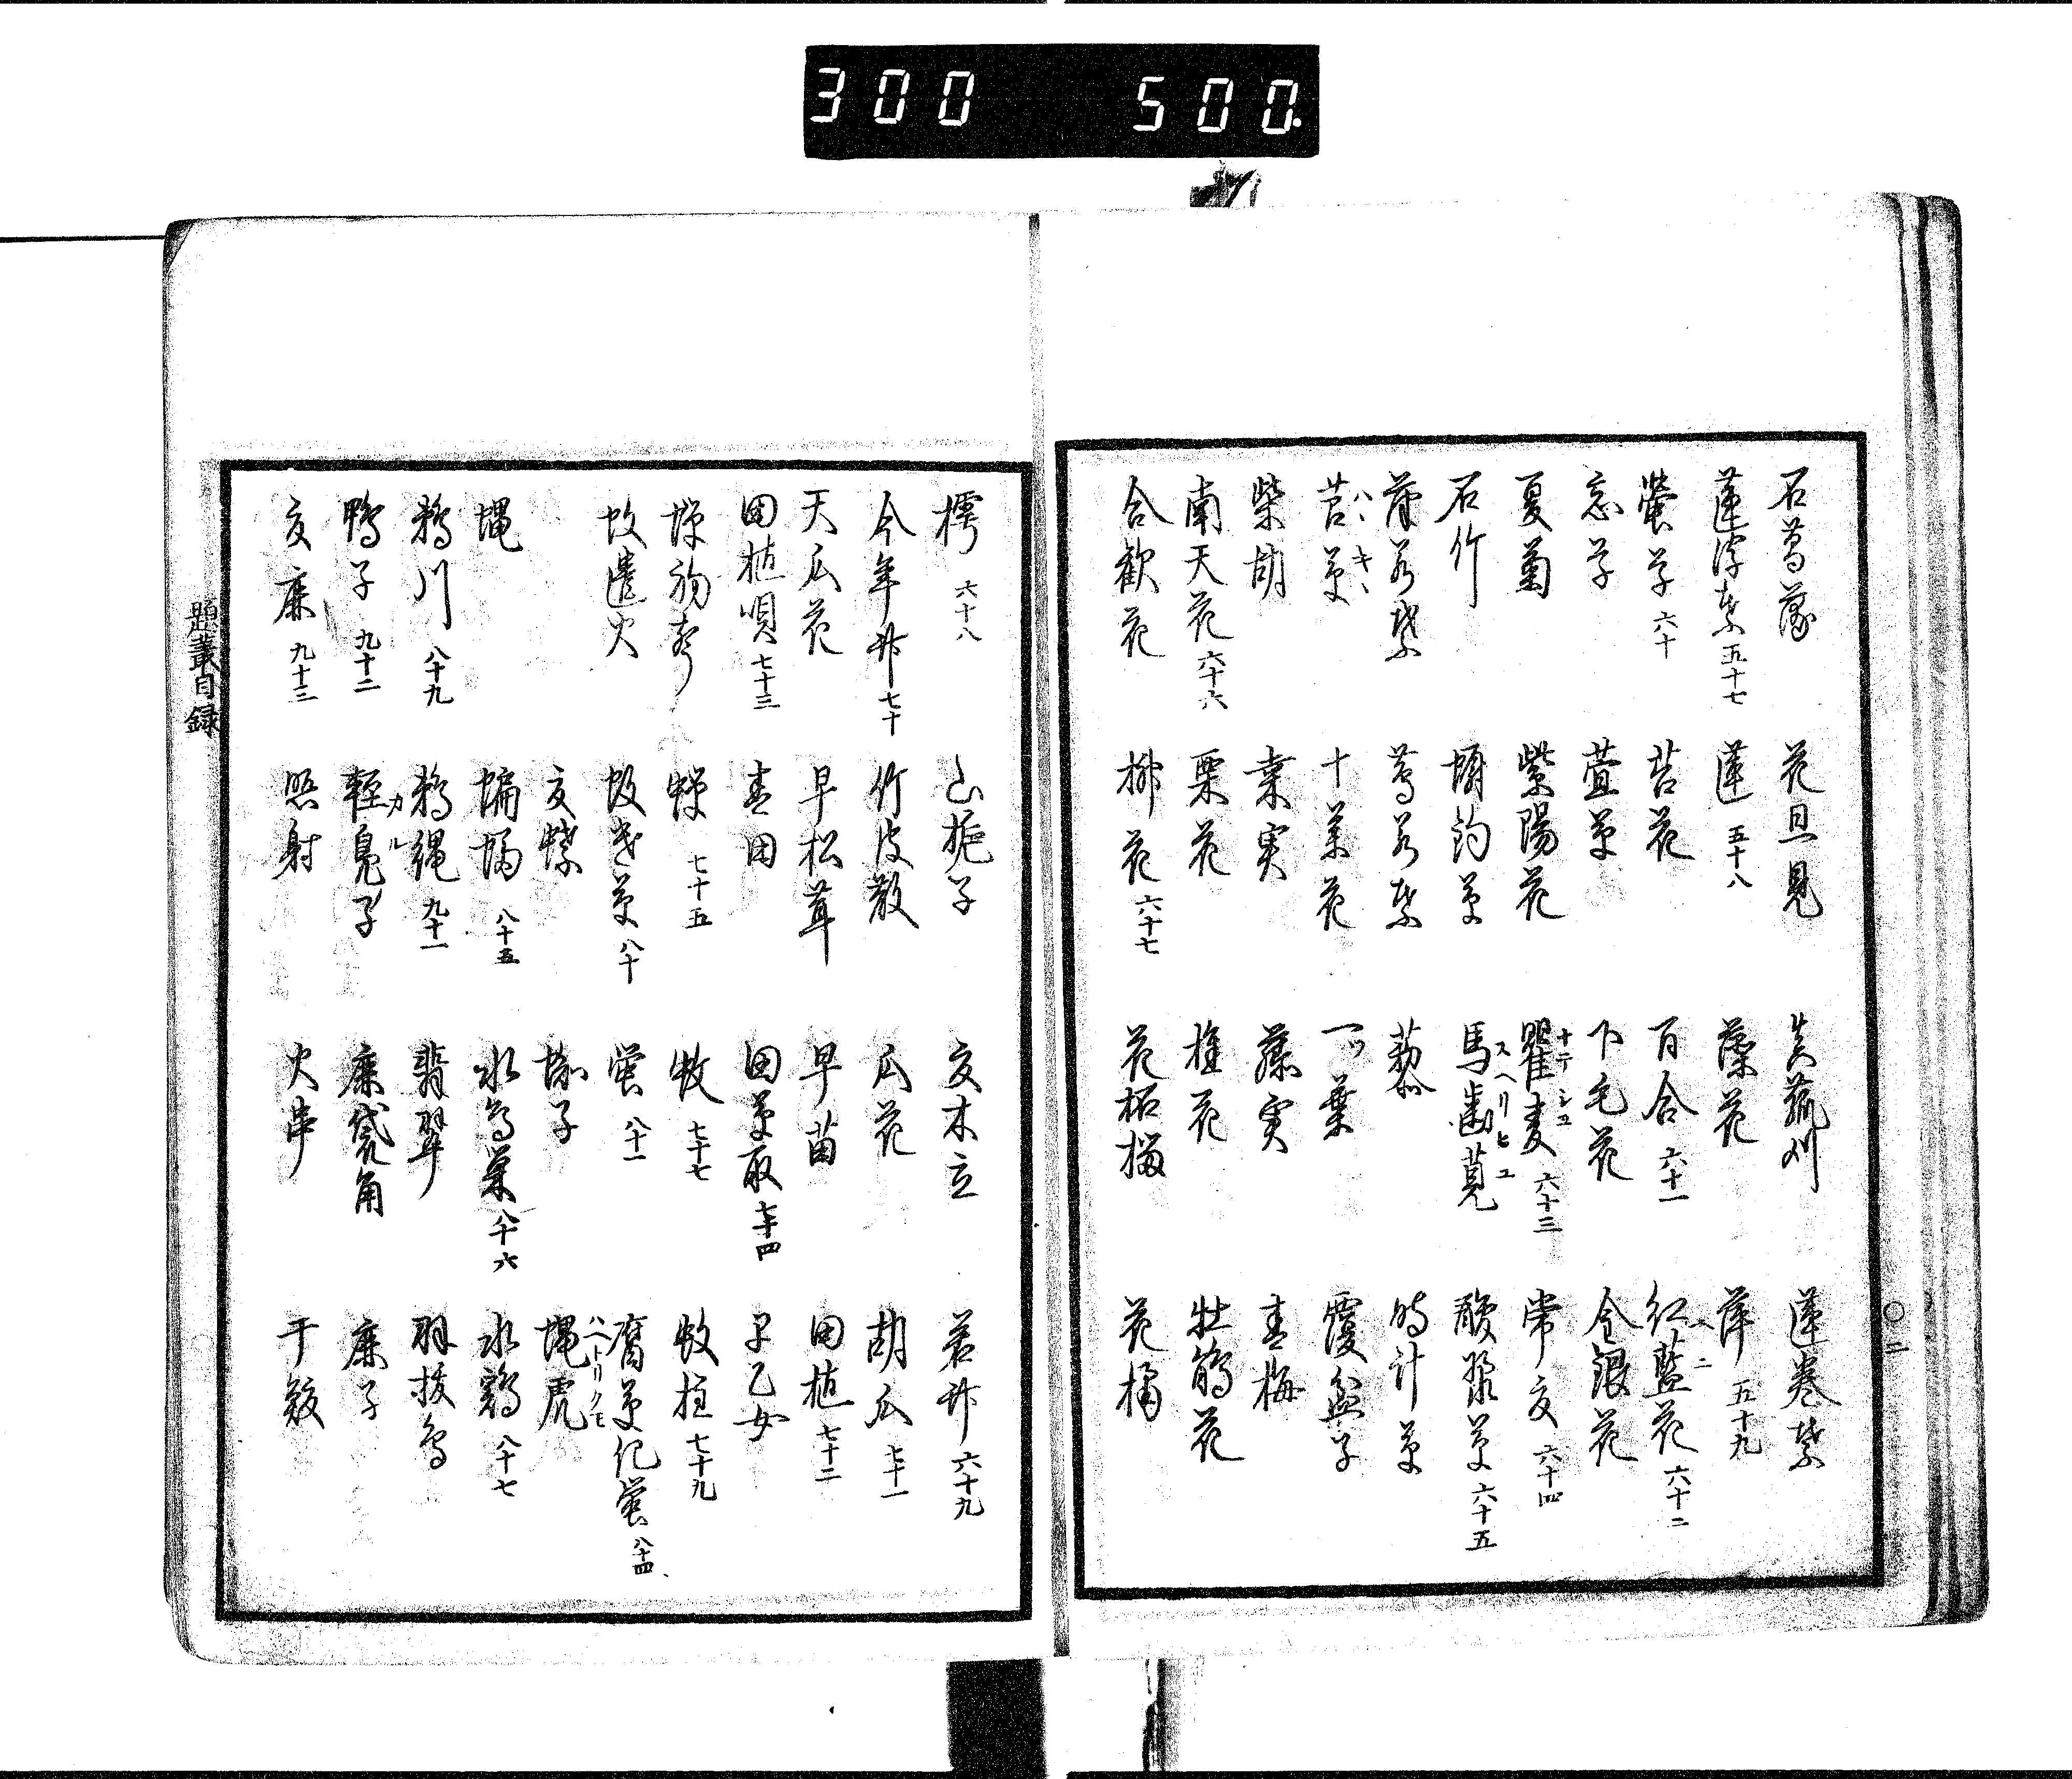 300 500.
石菖蒲 花且見 真菰刈 蓮巻葉
蓮浮葉 五十七 蓮 五十八 藻花 萍 五十九
蛍草 六十 苔花 百合 六十一 紅藍花 六十二
忘草 萱草 下毛花 金銀花
夏菊 紫陽花 瞿麦 ナデシコ 六十三 常夏 六十四
石竹 馬歯莧 スヘリヒユ 酸漿草 六十五
葛若葉 藜 時計草
苔草 十薬花 一ツ葉 覆盆子
柴胡 桑実 青梅
南天花 六十六 栗花 椎花 牡鶴花
合歓花 柳花 六十七 花柘榴 花橘
樗 六十八 山梔子 夏木立 若竹 六十九
今年竹 七十 竹皮散 瓜花 胡瓜 七十一
天瓜花 早松茸 早苗 田植 七十二
田植唄 七十三 青田 田草取 七十四 早乙女
蝉 七十五 蚊 七十七 蚊柱 七十九
蚊遣火 八十 蛍 八十一 腐草化蛍 八十四
孑子 蠅虎 ハヘトリクモ
蠅 蝙蝠 八十五 水鳥巣 八十六 水鶏 八十七
鵜川 八十九 鵜縄 九十一 翡翠 羽抜鳥
鴨子 九十二 軽鳧子 カル 鹿袋角 鹿子
夏鹿 九十三 照射 火串 干飯
題叢目録
〇二